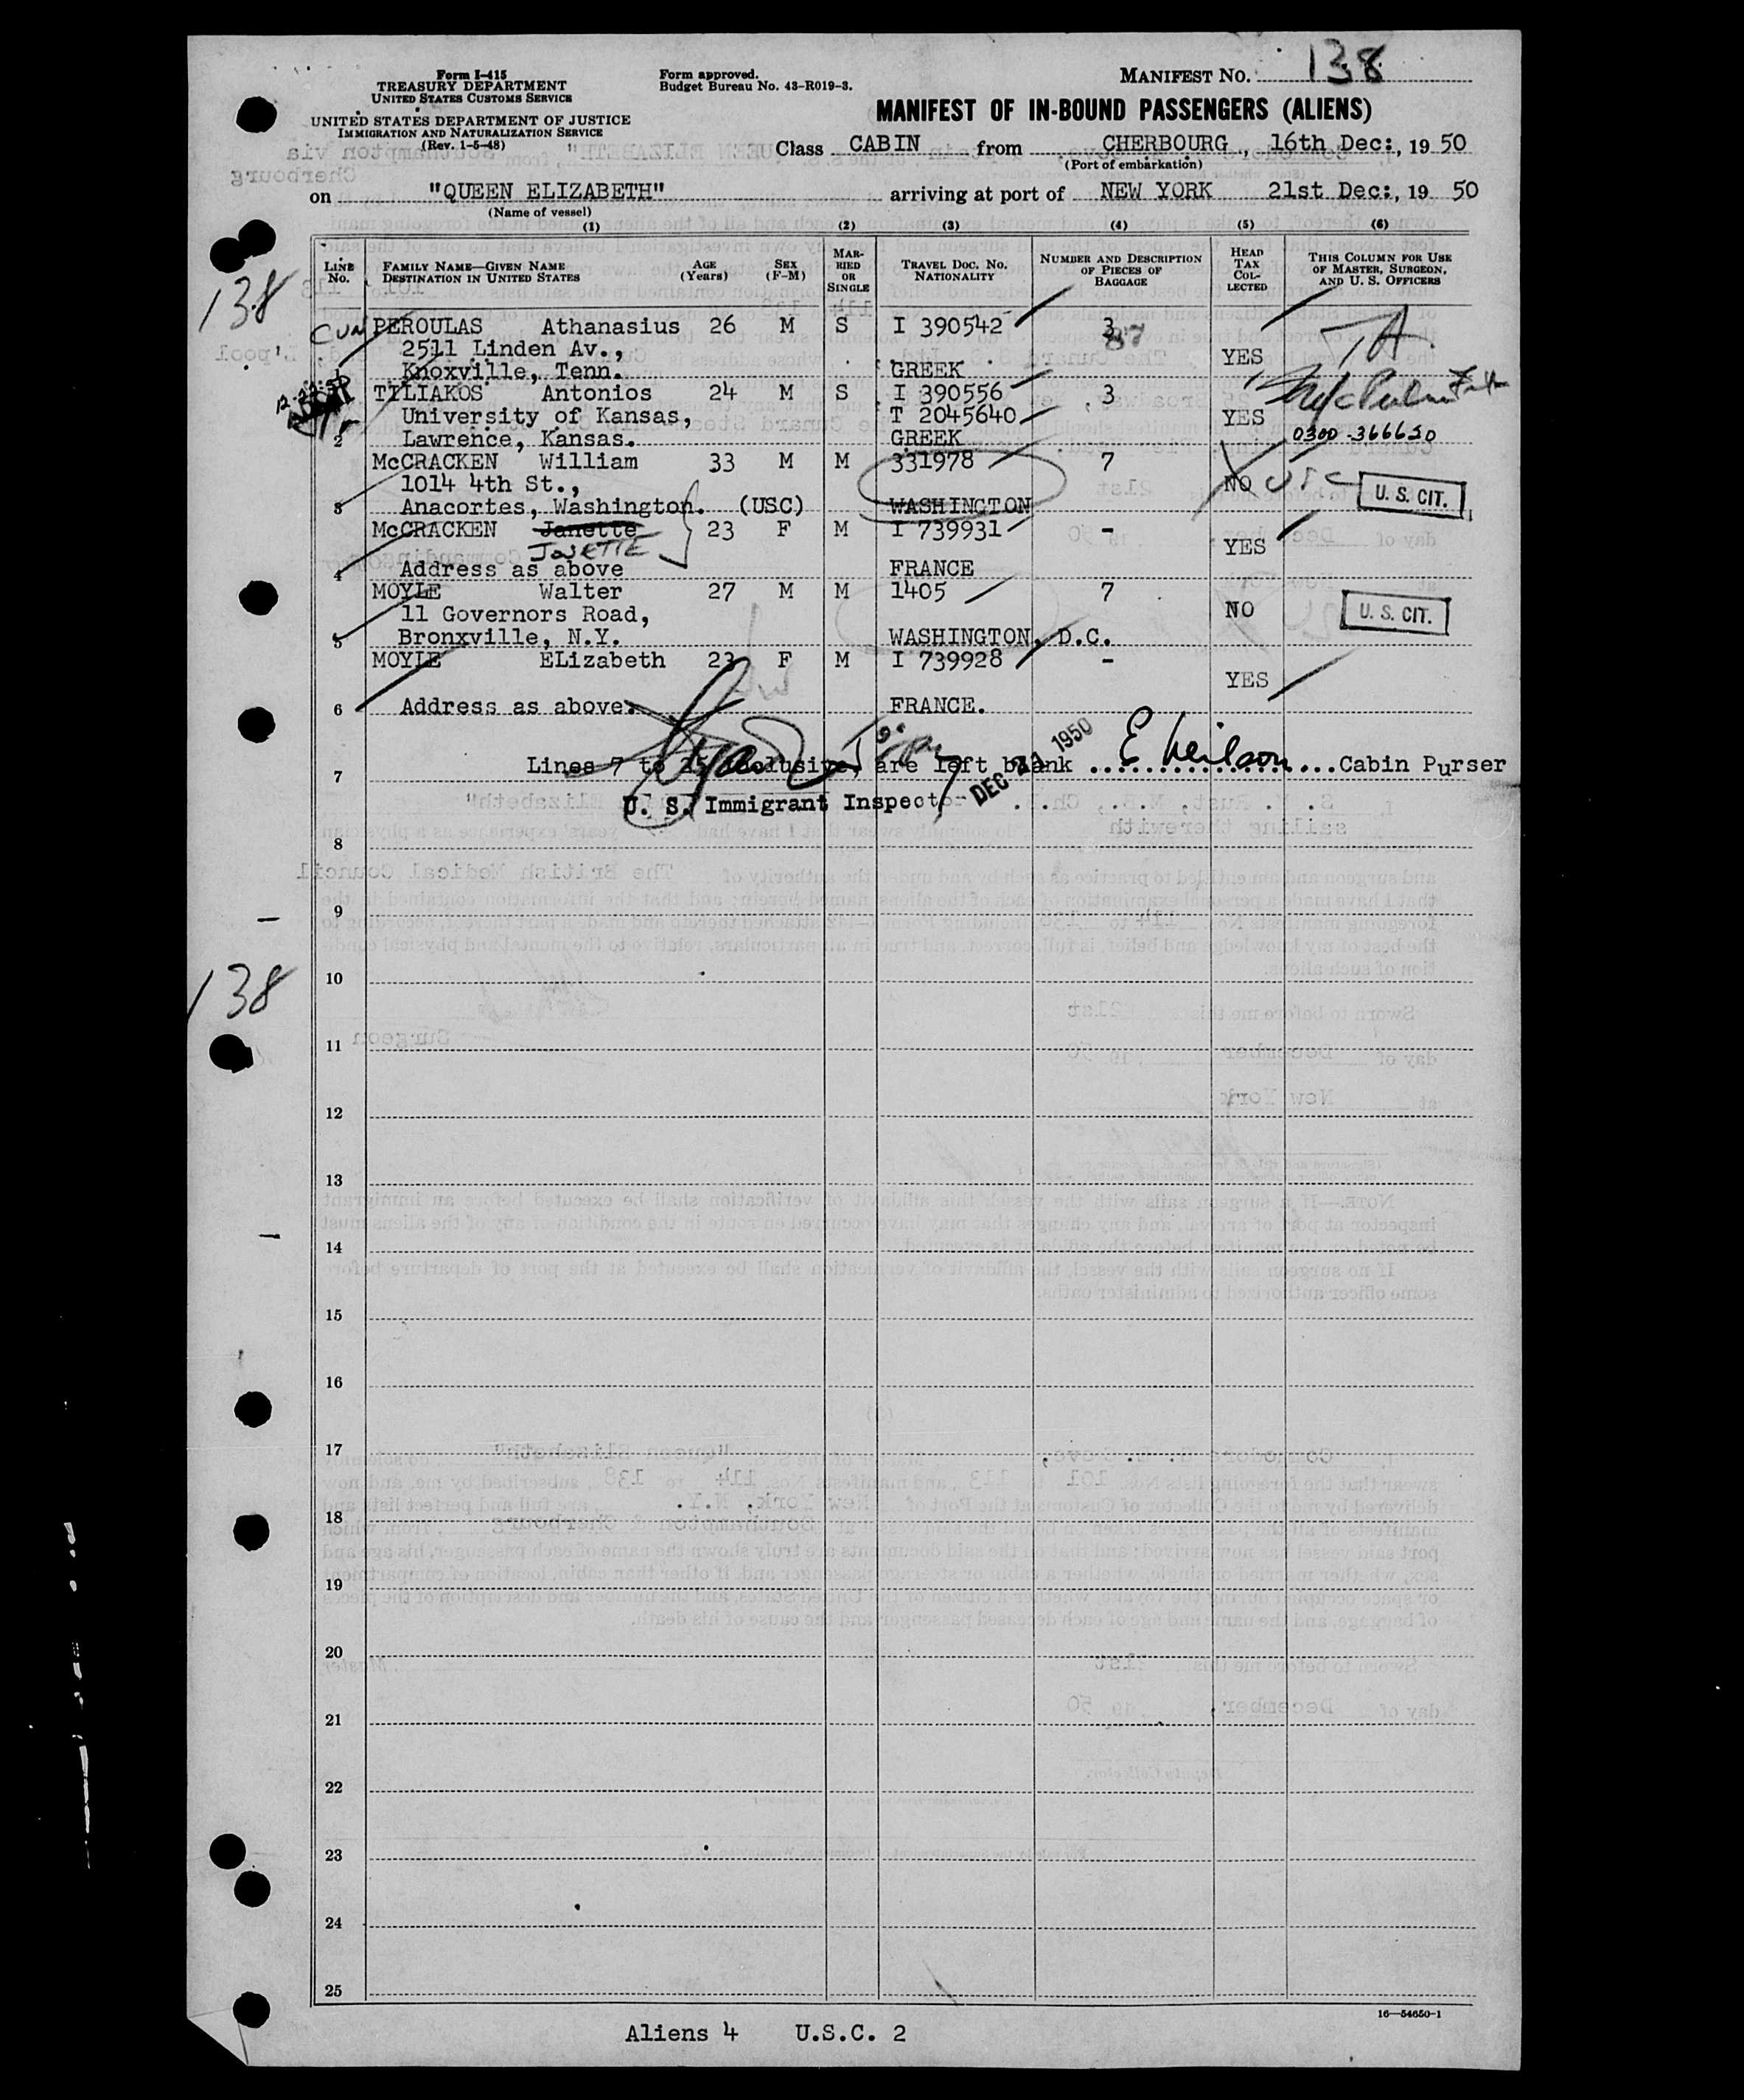 Form I-415
TREASURY DEPARTMENT
UNITED STATES CUSTOMS SERVICE
UNITED STATES DEPARTMENT OF JUSTICE
IMMIGRATION AND NATURALIZATION SERVICE
(Rev. 1-5-48)
Form approved.
Budget Bureau No. 43-R019-3.
MANIFEST NO. 138
MANIFEST OF IN-BOUND PASSENGERS (ALIENS)
Class CABIN from CHERBOURG, 16th Dec:, 19 50
(Port of embarkation)
on "QUEEN ELIZABETH" arriving at port of NEW YORK 21st Dec:, 19 50
(Name of vessel)
(1) (2) (3) (4) (5) (6)
LINE No. FAMILY NAME—GIVEN NAME DESTINATION IN UNITED STATES AGE (Years) SEX (F-M) MARRIED OR SINGLE TRAVEL DOC. NO. NATIONALITY NUMBER AND DESCRIPTION OF PIECES OF BAGGAGE HEAD TAX COLLECTED THIS COLUMN FOR USE OF MASTER, SURGEON, AND U. S. OFFICERS
138
CUN PEROULAS Athanasius 26 M S I 390542 3
87
2511 Linden Av.,
YES
1 Knoxville, Tenn. GREEK
TILIAKOS Antonios 24 M S I 390556 3
University of Kansas, T 2045640 YES
2 Lawrence, Kansas. GREEK 0300-366650
McCRACKEN William 33 M M 331978 7
1014 4th St., NO U.S. CIT.
3 Anacortes, Washington. (USC) WASHINGTON
McCRACKEN Janette 23 F M I 739931 -
JOSETTE YES
4 Address as above FRANCE
MOYLE Walter 27 M M 1405 7
11 Governors Road, NO U.S. CIT.
5 Bronxville, N.Y. WASHINGTON, D.C.
MOYLE ELizabeth 23 F M I 739928 -
YES
6 Address as above. FRANCE.
DEC 21 1950
7 Lines 7 to 25 inclusive, are left blank E Neilson Cabin Purser
U. S. Immigrant Inspector
8
9
138
10
11
12
13
14
15
16
17
18
19
20
21
22
23
24
25
16—54650-1
Aliens 4 U.S.C. 2